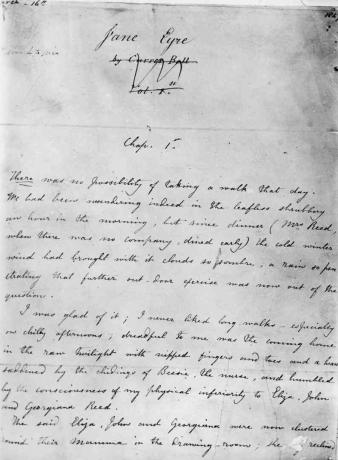 16th
Jane Eyre
by Currer Bell
Vol. 1st
Chap. 1.
There was no possibility of taking a walk that day.
We had been wandering indeed in the leafless shrubbery
an hour in the morning, but since dinner (Mrs Reed,
when there was no company, dined early) the cold winter
wind had brought with it clouds so sombre, a rain so pen
etrating that further out-door exercise was now out of the
question.
I was glad of it; I never liked long walks - especially
on chilly afternoons; dreadful to me was the coming home
in the raw twilight with nipped fingers and toes and a hear
saddened by the chidings of Bessie, the nurse, and humbled
by the consciousness of my physical inferiority to Eliza, John
and Georgiana Reed.
The said Eliza, John and Georgiana were now clustered
round their Mamma in the drawing-room; she reclined